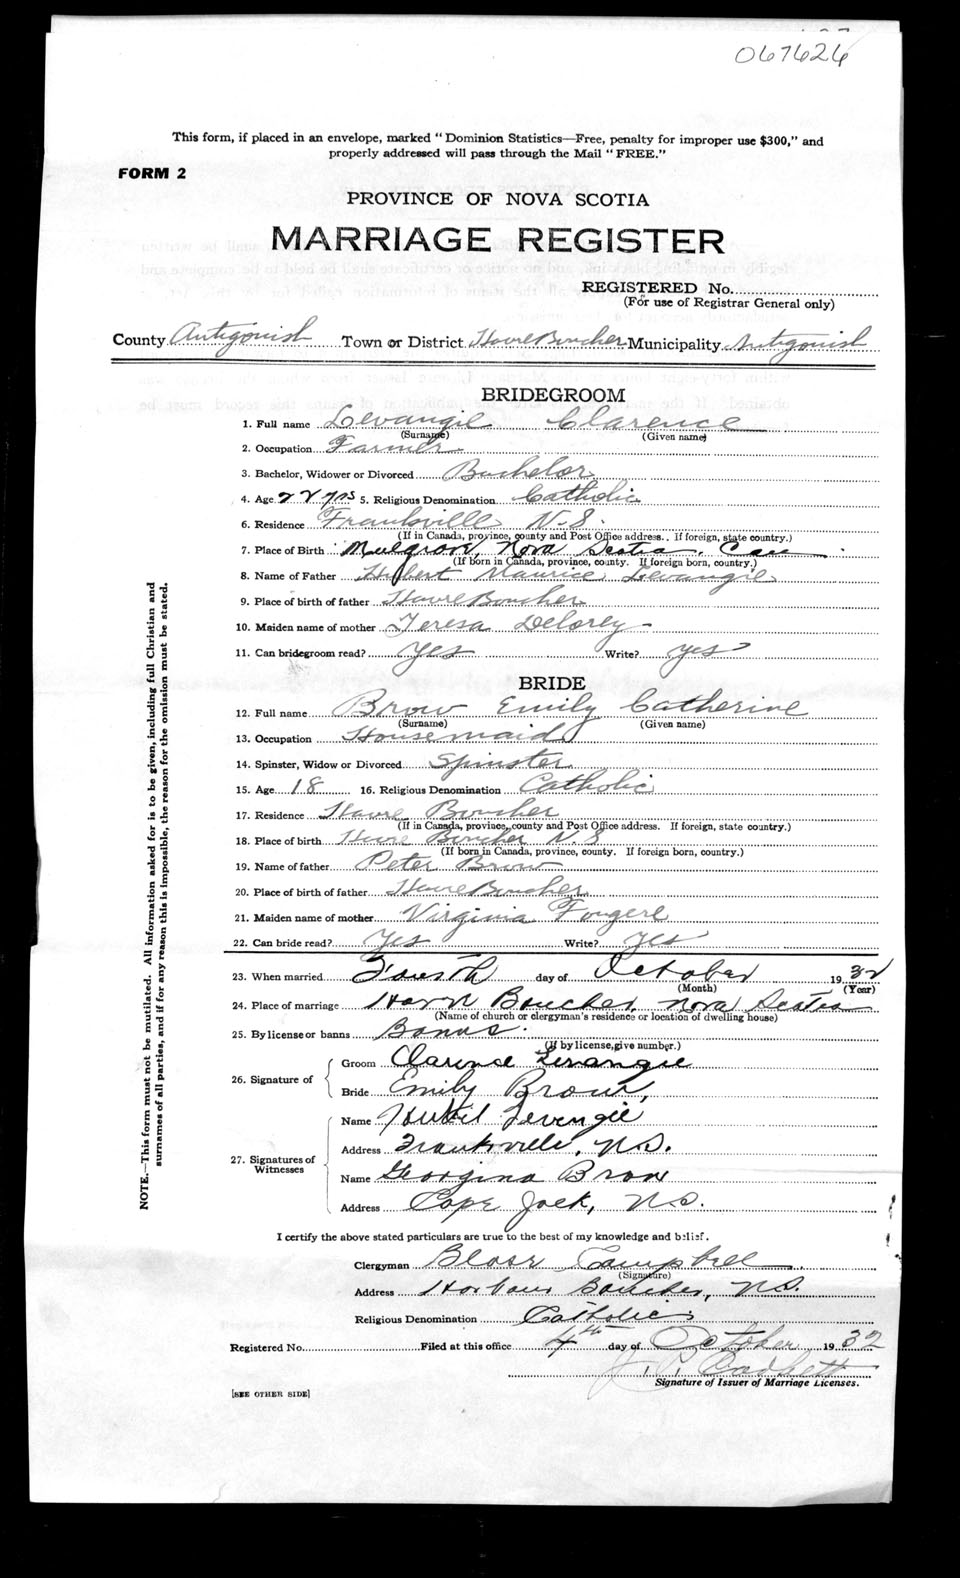 067626
This form, if placed in an envelope, marked "Dominion Statistics—Free, penalty for improper use $300," and
properly addressed will pass through the Mail "FREE."
FORM 2
PROVINCE OF NOVA SCOTIA
MARRIAGE REGISTER
REGISTERED No.
(For use of Registrar General only)
County Antigonish Town or District Havre Boucher Municipality Antigonish
BRIDEGROOM
1. Full name Levangie Clarence
(Surname) (Given name)
2. Occupation Farmer
3. Bachelor, Widower or Divorced Bachelor
4. Age 22 yrs 5. Religious Denomination Catholic
6. Residence Franksville N.S.
(If in Canada, province, county and Post Office address. If foreign, state country.)
7. Place of Birth Mulgrave, Nova Scotia, Can
(If born in Canada, province, county. If foreign born, country.)
8. Name of Father Hubert Maurice Levangie
9. Place of birth of father Havre Boucher
10. Maiden name of mother Teresa Delorey
11. Can bridegroom read? Yes Write? yes
BRIDE
12. Full name Brow Emily Catherine
(Surname) (Given name)
13. Occupation Housemaid
14. Spinster, Widow or Divorced Spinster
15. Age 18 16. Religious Denomination Catholic
17. Residence Havre Boucher
(If in Canada, province, county and Post Office address. If foreign, state country.)
18. Place of birth Havre Boucher N.S
(If born in Canada, province, county. If foreign born, country.)
19. Name of father Peter Brow
20. Place of birth of father Havre Boucher
21. Maiden name of mother Virginia Fougere
22. Can bride read? Yes Write? Yes
23. When married Fourth day of October 1932
(Month) (Year)
24. Place of marriage Havre Boucher, Nova Scotia
(Name of church or clergyman's residence or location of dwelling house)
25. By license or banns Banns.
(If by license, give number.)
26. Signature of Groom Clarence Levangie
Bride Emily Brow,
27. Signatures of Witnesses Name Levengie
Address Franksville, N.S.
Name Georgina Brow
Address Cape Jack, N.S.
I certify the above stated particulars are true to the best of my knowledge and belief.
Clergyman Campbell
(Signature)
Address Harbour Boucher, N.S.
Religious Denomination Catholic
Registered No. Filed at this office 4th day of October 1932
Signature of Issuer of Marriage Licenses.
[SEE OTHER SIDE]
NOTE.—This form must not be mutilated. All information asked for is to be given, including full Christian and
surnames of all parties, and if for any reason this is impossible, the reason for the omission must be stated.